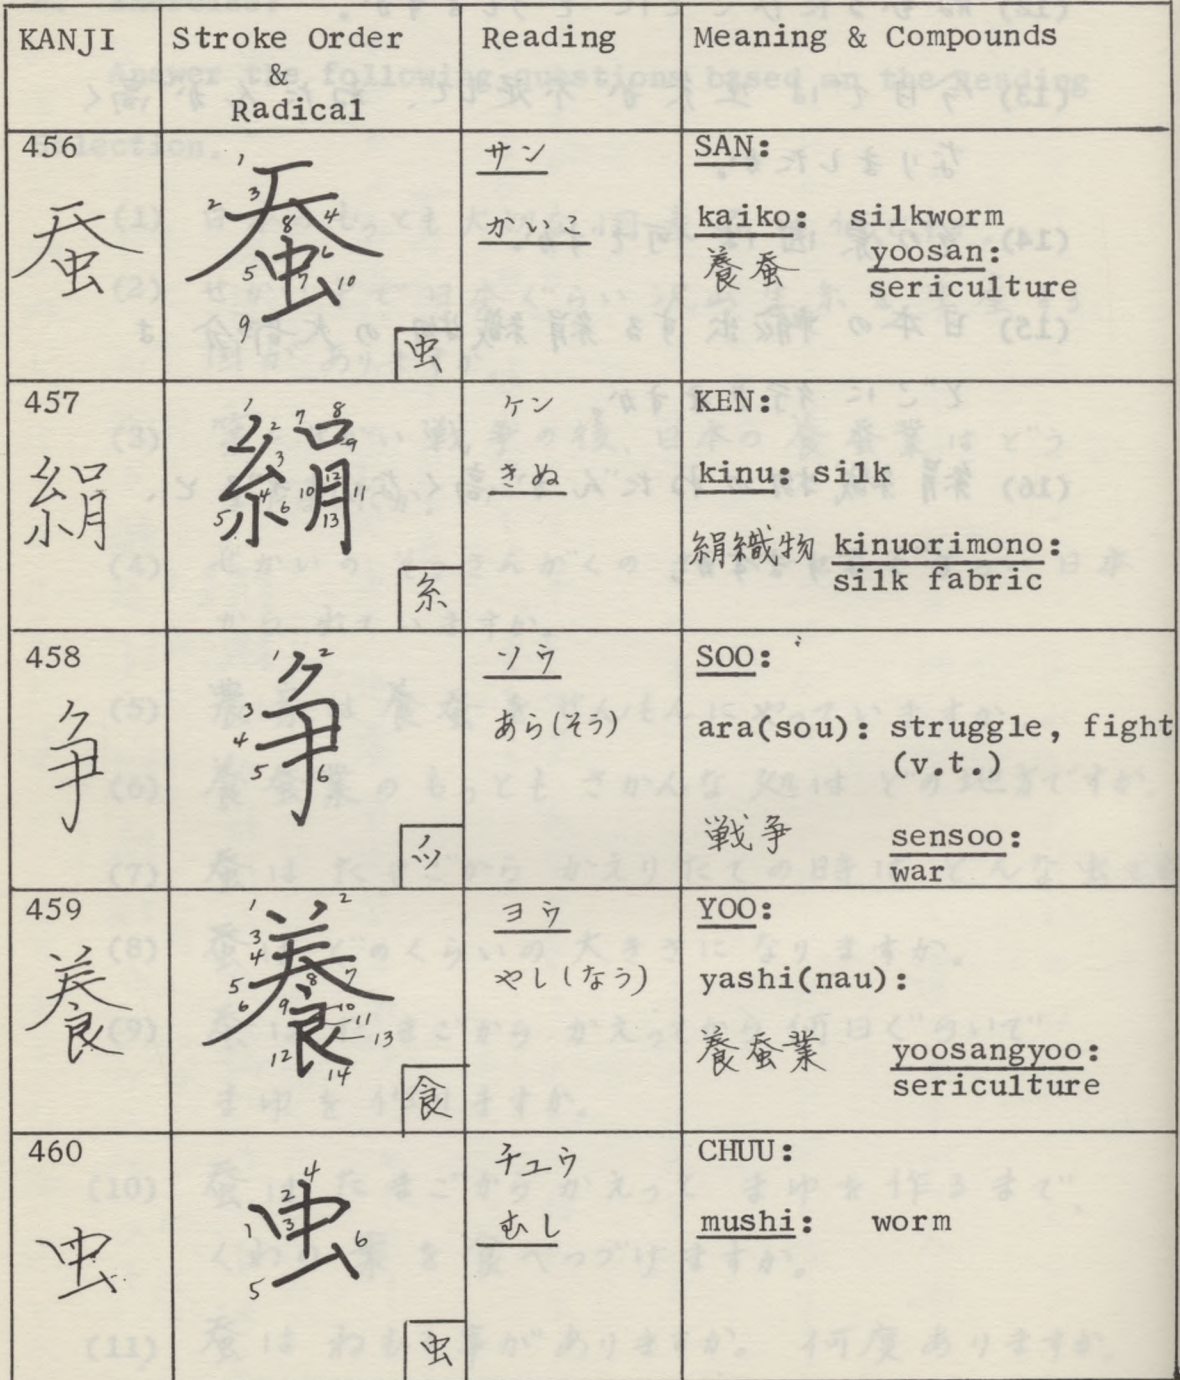 KANJI Stroke Order Reading Meaning & Compounds
&
Radical
456
蚕
蚕
1 2 3 4 5 6 7 8 9 10
虫
サン
かいこ
SAN:
kaiko: silkworm
養蚕 yoosan:
sericulture
457
絹
絹
1 2 3 4 5 6 7 8 9 10 11 12 13
糸
ケン
きぬ
KEN:
kinu: silk
絹織物 kinuorimono:
silk fabric
458
争
争
1 2 3 4 5 6
ソウ
あら(そう)
SOO:
ara(sou): struggle, fight
(v.t.)
戦争 sensoo:
war
459
養
養
1 2 3 4 5 6 7 8 9 10 11 12 13 14
食
ヨウ
やし(なう)
YOO:
yashi(nau):
養蚕業 yoosangyoo:
sericulture
460
虫
虫
1 2 3 4 5 6
虫
チュウ
むし
CHUU:
mushi: worm